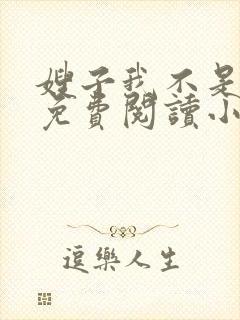 嫂子我不是
免費閱讀小
逗樂人生